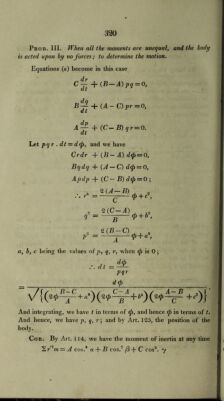 320
PROB. III. When all the moments are unequal, and the body
is acted upon by no forces; to determine the motion.
Equations (e) become in this case
C dr/dt + (B—A) pq = 0,
B dq/dt + (A – C) pr = 0,
A dp/dt + (C – B) qr = 0.
Let pqr . dt = dφ, and we have
Crdr + (B – A) dφ = 0,
Bqdq + (A – C) dφ = 0,
Apdp + (C – B) dφ = 0;
∴ r² = 2(A – B)/C φ + c²,
q² = 2(C – A)/B φ + b²,
p² = 2(B – C)/A φ + a²,
a, b, c being the values of p, q, r, when φ is 0;
∴ dt = dφ/pqr
= dφ / √{(2φ B-C/A + a²)(2φ C-A/B + b²)(2φ A-B/C + c²)}
And integrating, we have t in terms of φ, and hence φ in terms of t.
And hence, we have p, q, r; and by Art. 125, the position of the
body.
COR. By Art. 114, we have the moment of inertia at any time
Σr'²m = A cos.² α + B cos.² β + C cos². γ